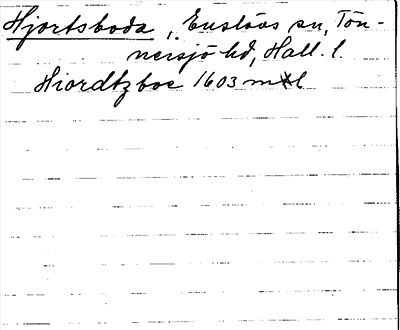 Hjortsboda, Enslövs sn, Tön-
nersjö hd, Hall. l.
Hiordtzboe 1603 mtl